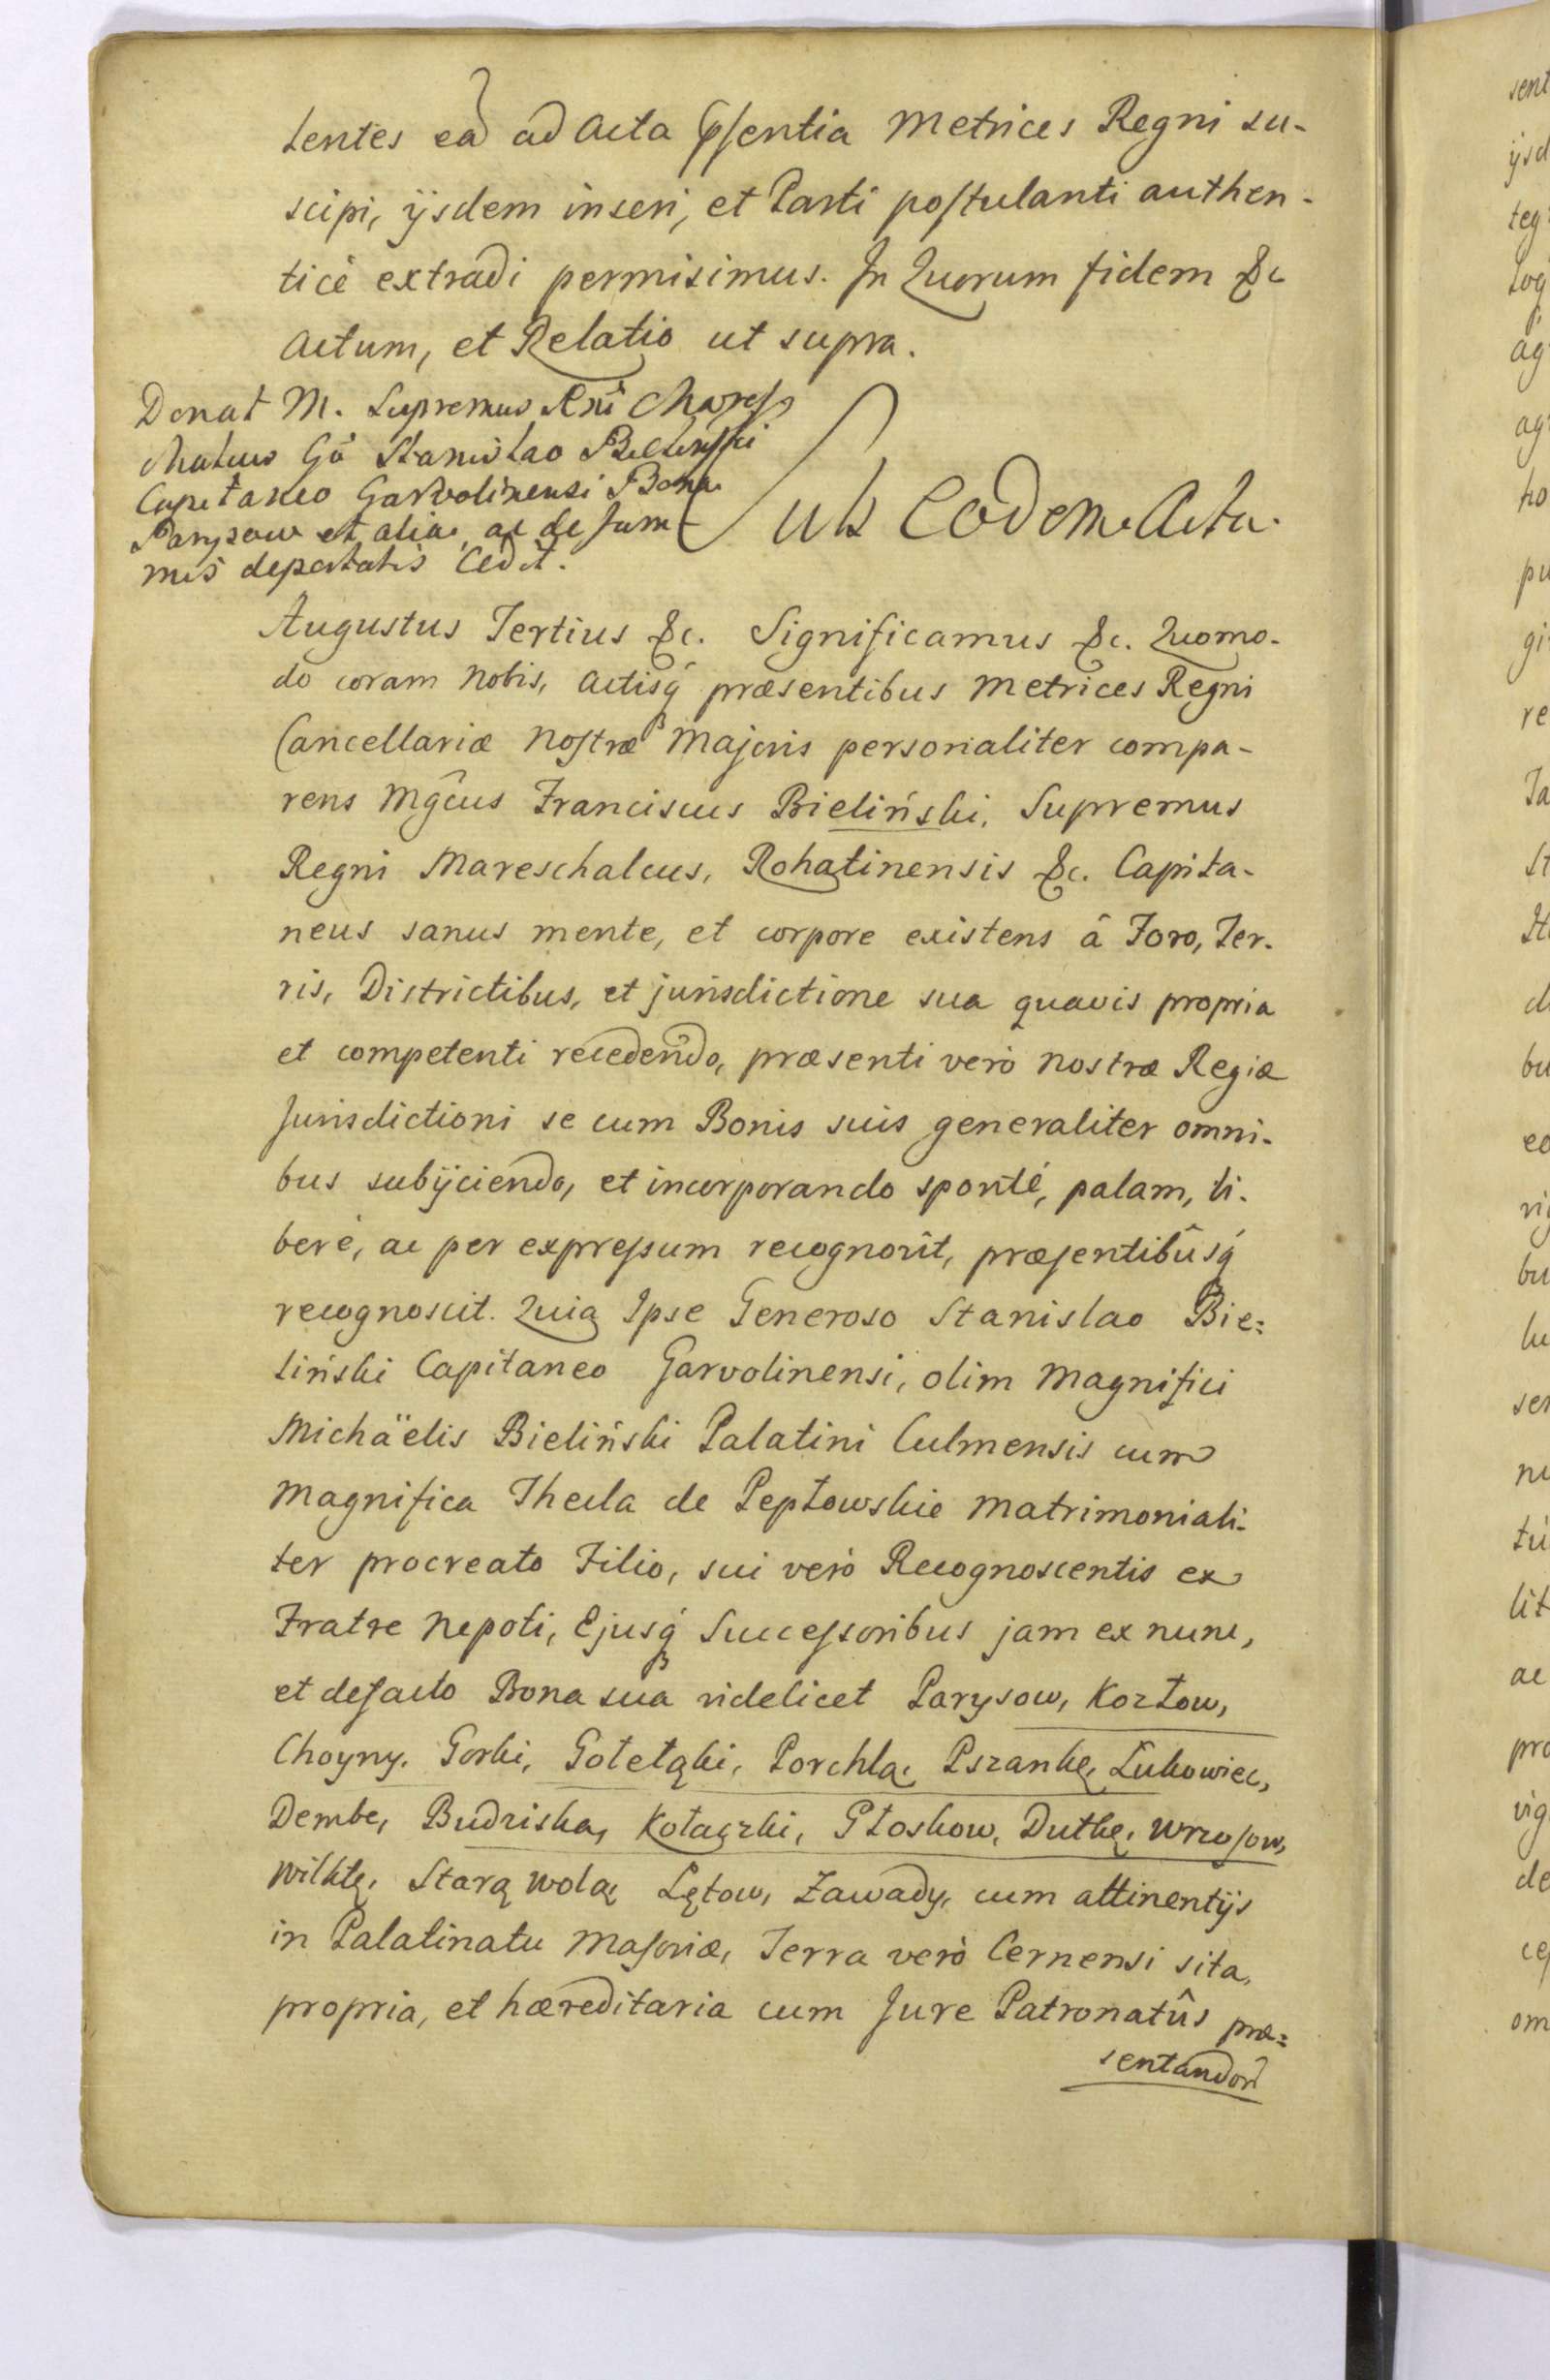 tentes eâ ad Acta Psentia Metrices Regni su-
scipi, ijsdem inseri, et Parti postulanti authen-
ticè extradi permisimus. In Quorum fidem &c
Actum, et Relatio ut supra.
Donat M. Supremus Rni Mares
chalcus Gō Stanislao Bielinski
Capitaneo Garvolinensi Bona
Parysow et alia, ac de sum
mis deportatis Cedit.
Sub Eodem Actu.
Augustus Tertius &c. Significamus &c. Quomo-
do coram Nobis, Actisq́ præsentibus Metrices Regni
Cancellariæ Nostræ Majoris personaliter compa-
rens Mg̃cus Franciscus Bieliński, Supremus
Regni Mareschalcus, Rohatinensis &c. Capita-
neus sanus mente, et corpore existens â Foro, Ter-
ris, Districtibus, et jurisdictione sua quavis propria
et competenti recedendo, præsenti verò Nostræ Regiæ
Jurisdictioni se cum Bonis suis generaliter omni-
bus subijciendo, et incorporando spontè, palam, li-
berè, ac per expressum recognovit, præsentibûsq́
recognoscit. Quia Ipse Generoso Stanislao Bie=
liński Capitaneo Garvolinensi, olim Magnifici
Michäelis Bieliński Palatini Culmensis cum
Magnifica Thecla de Pepłowskie matrimoniali-
ter procreato Filio, sui verò Recognoscentis ex
Fratre Nepoti, Ejusq́ Successoribus jam ex nunc,
et defacto Bona sua videlicet Parysow, Kozłow,
Choyny, Gorki, Gołełąki, Porchlą, Pszankę, Łukowiec,
Dembe, Budziska, Kołaczki, Płoskow, Dutkę, Wrzosow,
Wilktę, Starą wolą Łętow, Zawady, cum attinentijs
in Palatinatu Masoviæ, Terra verò Cernensi sita,
propria, et hæreditaria cum Jure Patronatûs præ=
sentandor̃